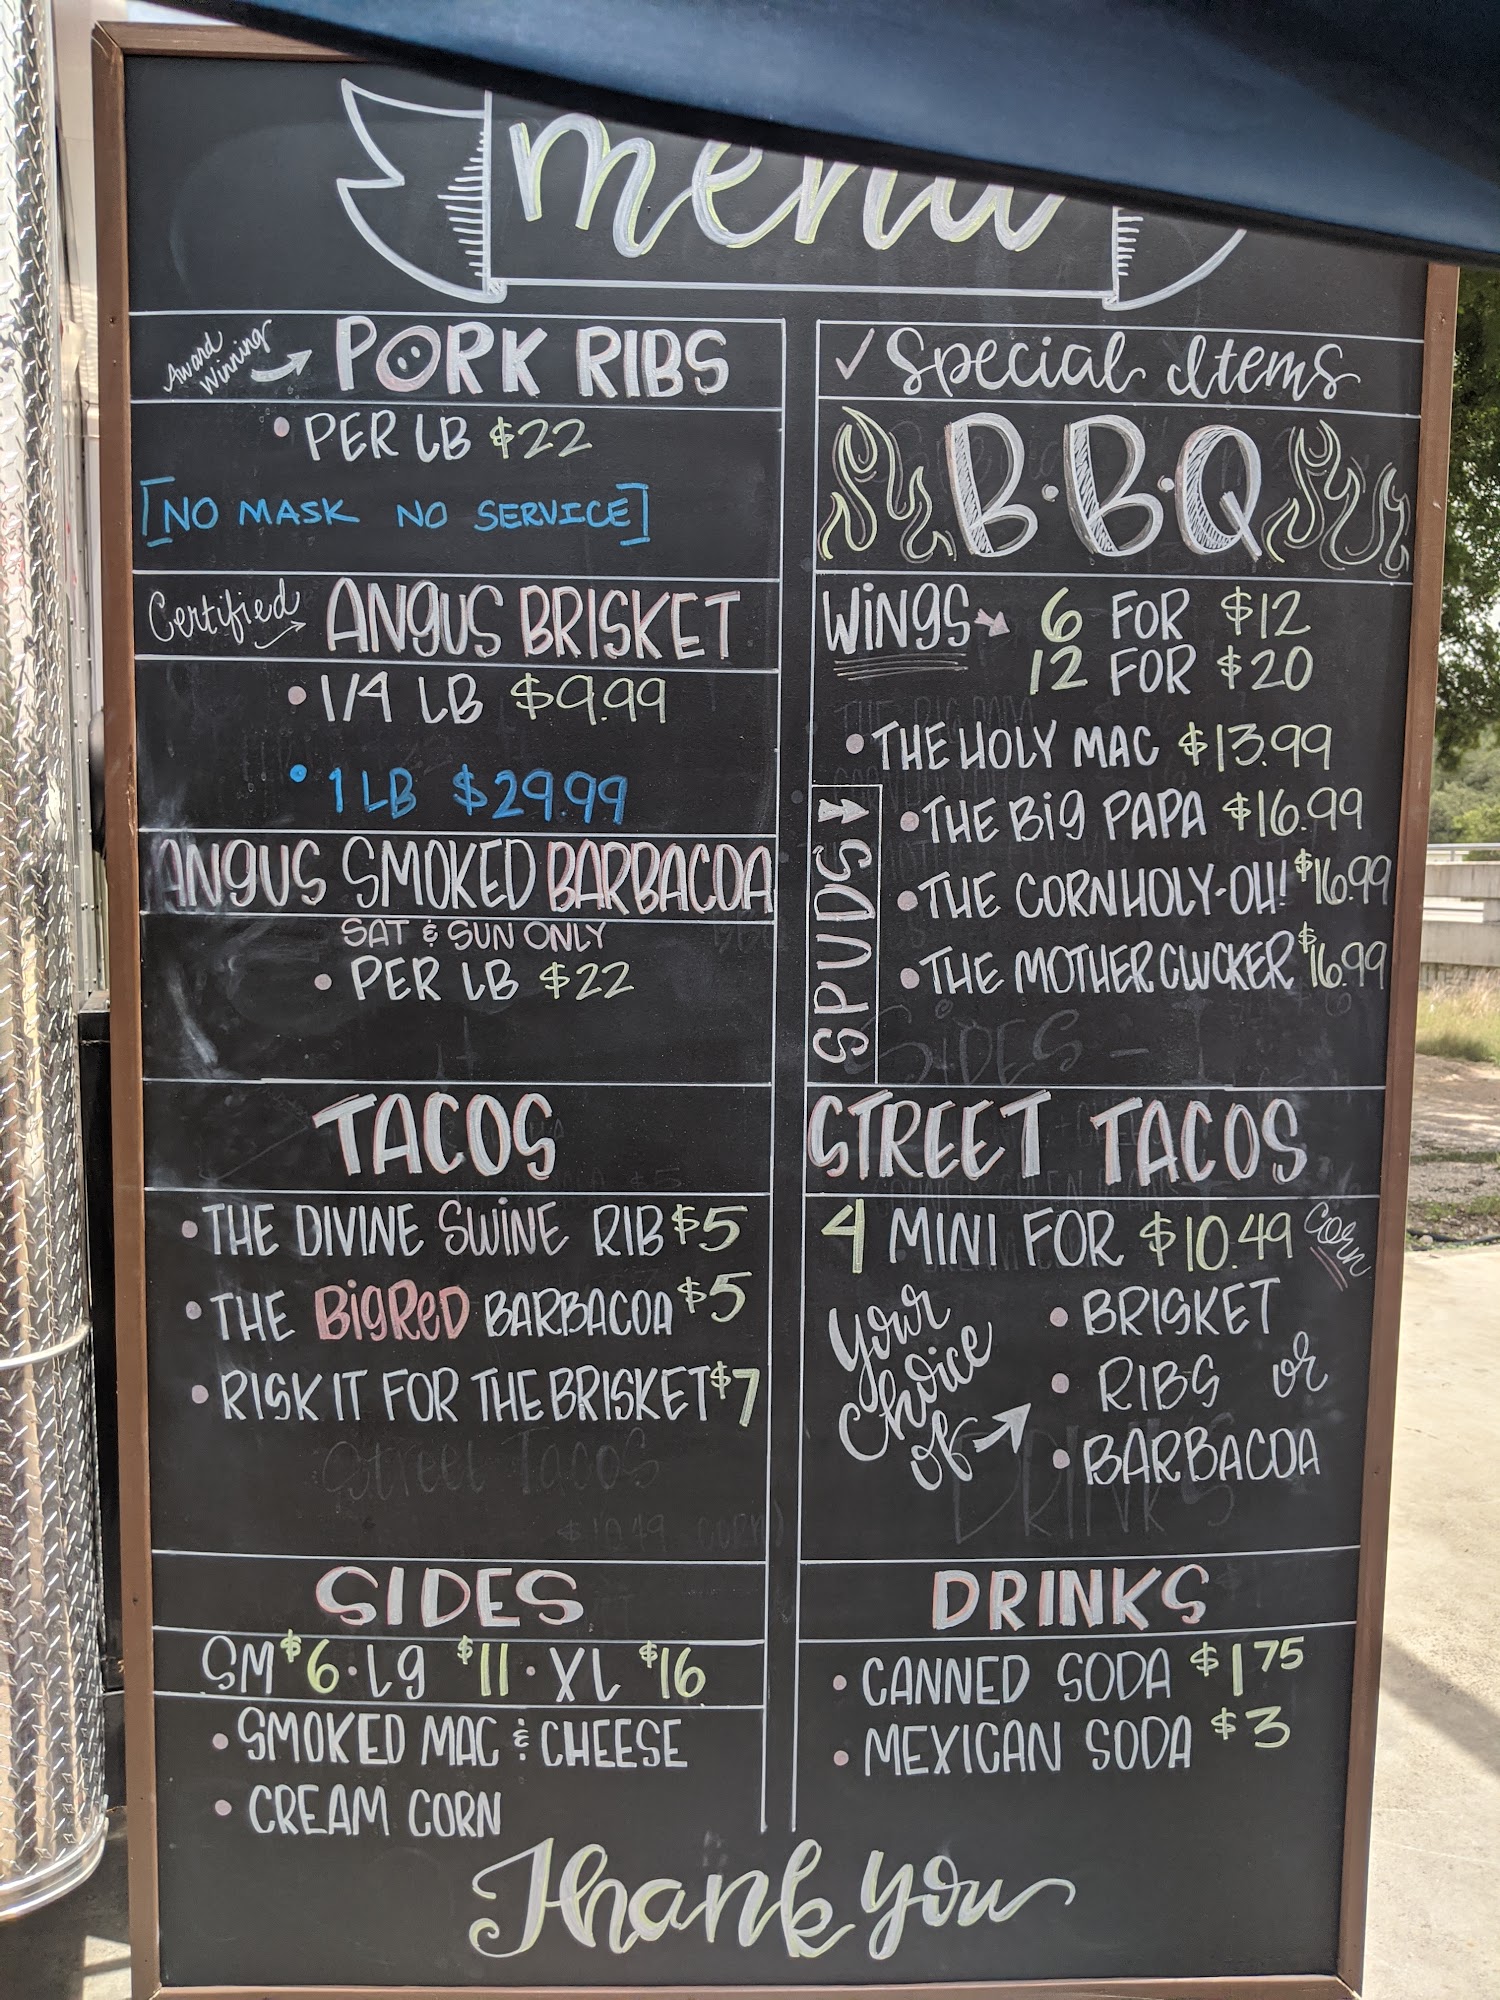 menu
Award Winning PORK RIBS
• PER LB $22
[NO MASK NO SERVICE]
Certified ANGUS BRISKET
• 1/4 LB $9.99
• 1 LB $29.99
ANGUS SMOKED BARBACOA
SAT & SUN ONLY
• PER LB $22
TACOS
• THE DIVINE SWINE RIB $5
• THE BIG RED BARBACOA $5
• RISK IT FOR THE BRISKET $7
Street Tacos
$10.49 CORN
SIDES
SM $6 · Lg $11 · XL $16
• SMOKED MAC & CHEESE
• CREAM CORN
✓ Special Items
B·B·Q
WINGS 6 FOR $12
12 FOR $20
SPUDS
• THE HOLY MAC $13.99
• THE BIG PAPA $16.99
• THE CORNHOLY-OH! $16.99
• THE MOTHER CLUCKER $16.99
SIDES -
STREET TACOS
4 MINI FOR $10.49 Corn
Your Choice of
• BRISKET
• RIBS or
• BARBACOA
DRINKS
DRINKS
• CANNED SODA $1.75
• MEXICAN SODA $3
Thank you